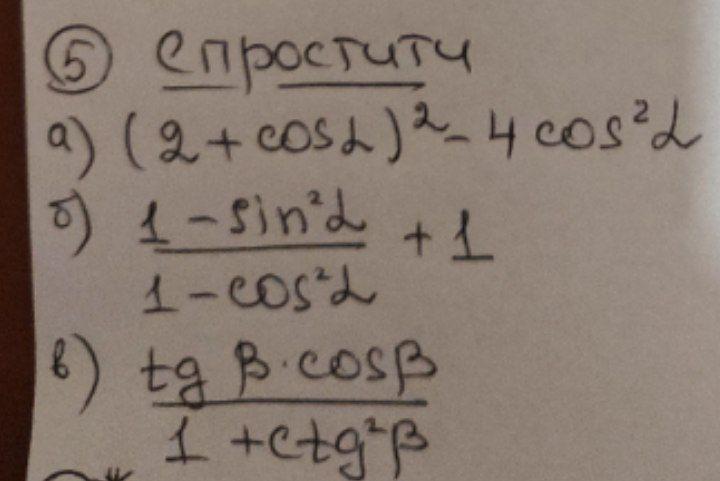 ⑤ Спростити
а) (2 + cosα)² - 4 cos²α
б) (1 - sin²α) / (1 - cos²α) + 1
в) (tg β · cosβ) / (1 + ctg²β)